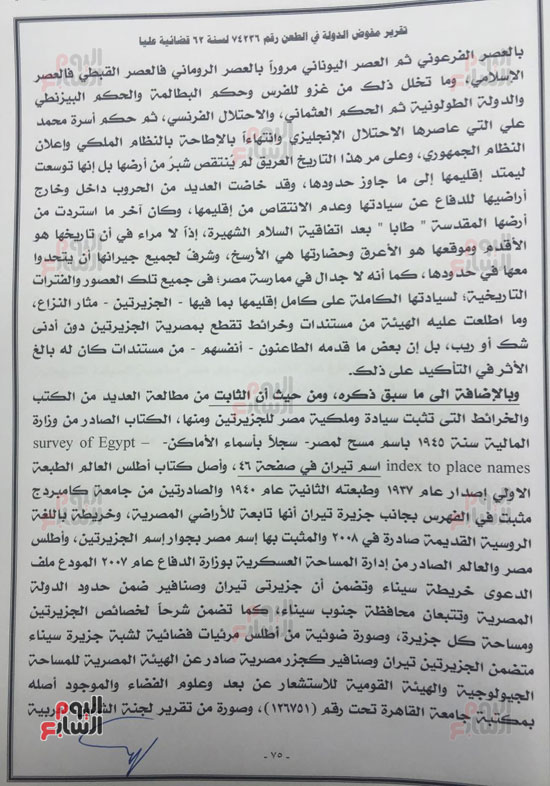 تقرير مفوض الدولة في الطعن رقم ٧٤٢٣٦ لسنة ٦٢ قضائية عليا
بالعصر الفرعوني ثم العصر اليوناني مروراً بالعصر الروماني فالعصر القبطي فالعصر
الإسلامي، وما تخلل ذلك من غزو للفرس وحكم البطالمة والحكم البيزنطي
والدولة الطولونية ثم الحكم العثماني، والاحتلال الفرنسي، ثم حكم أسرة محمد
علي التي عاصرها الاحتلال الإنجليزي وانتهاءاً بالإطاحة بالنظام الملكي وإعلان
النظام الجمهوري، وعلى مر هذا التاريخ العريق لم ينتقص شبرٌ من أرضها بل إنها توسعت
ليمتد إقليمها إلى ما جاوز حدودها، وقد خاضت العديد من الحروب داخل وخارج
أراضيها للدفاع عن سيادتها وعدم الانتقاص من إقليمها، وكان آخر ما استردت من
أرضها المقدسة " طابا " بعد اتفاقية السلام الشهيرة، إذاً لا مراء في أن تاريخها هو
الأقدام وموقعها هو الأعرق وحضارتها هي الأرسخ، وشرفٌ لجميع جيرانها أن يتحدوا
معها في حدودها، كما أنه لا جدال في ممارسة مصر؛ فى جميع تلك العصور والفترات
التاريخية؛ لسيادتها الكاملة على كامل إقليمها بما فيها - الجزيرتين - مثار النزاع،
وما اطلعت عليه الهيئة من مستندات وخرائط تقطع بمصرية الجزيرتين دون أدنى
شك أو ريب، بل إن بعض ما قدمه الطاعنون - أنفسهم - من مستندات كان له بالغ
الأثر في التأكيد على ذلك.
وبالإضافة الى ما سبق ذكره، ومن حيث أن الثابت من مطالعة العديد من الكتب
والخرائط التى تثبت سيادة وملكية مصر للجزيرتين ومنها، الكتاب الصادر من وزارة
المالية سنة ١٩٤٥ باسم مسح لمصر- سجلاً بأسماء الأماكن- survey of Egypt –
index to place names اسم تيران في صفحة ٤٦، وأصل كتاب أطلس العالم الطبعة
الاولي إصدار عام ١٩٣٧ وطبعته الثانية عام ١٩٤٠ والصادرتين من جامعة كامبردج
مثبت في الفهرس بجانب جزيرة تيران أنها تابعة للأراضي المصرية، وخريطة باللغة
الروسية القديمة صادرة في ٢٠٠٨ والمثبت بها إسم مصر بجوار إسم الجزيرتين، وأطلس
مصر والعالم الصادر من إدارة المساحة العسكرية بوزارة الدفاع عام ٢٠٠٧ المودع ملف
الدعوى خريطة سيناء وتضمن أن جزيرتى تيران وصنافير ضمن حدود الدولة
المصرية وتتبعان محافظة جنوب سيناء، كما تضمن شرحاً لخصائص الجزيرتين
ومساحة كل جزيرة، وصورة ضوئية من أطلس مرئيات فضائية لشبة جزيرة سيناء
متضمن الجزيرتين تيران وصنافير كجزر مصرية صادر عن الهيئة المصرية للمساحة
الجيولوجية والهيئة القومية للاستشعار عن بعد وعلوم الفضاء والموجود أصله
بمكتبة جامعة القاهرة تحت رقم (١٢٦٧٥١)، وصورة من تقرير لجنة
- ٧٥ -
اليوم السابع